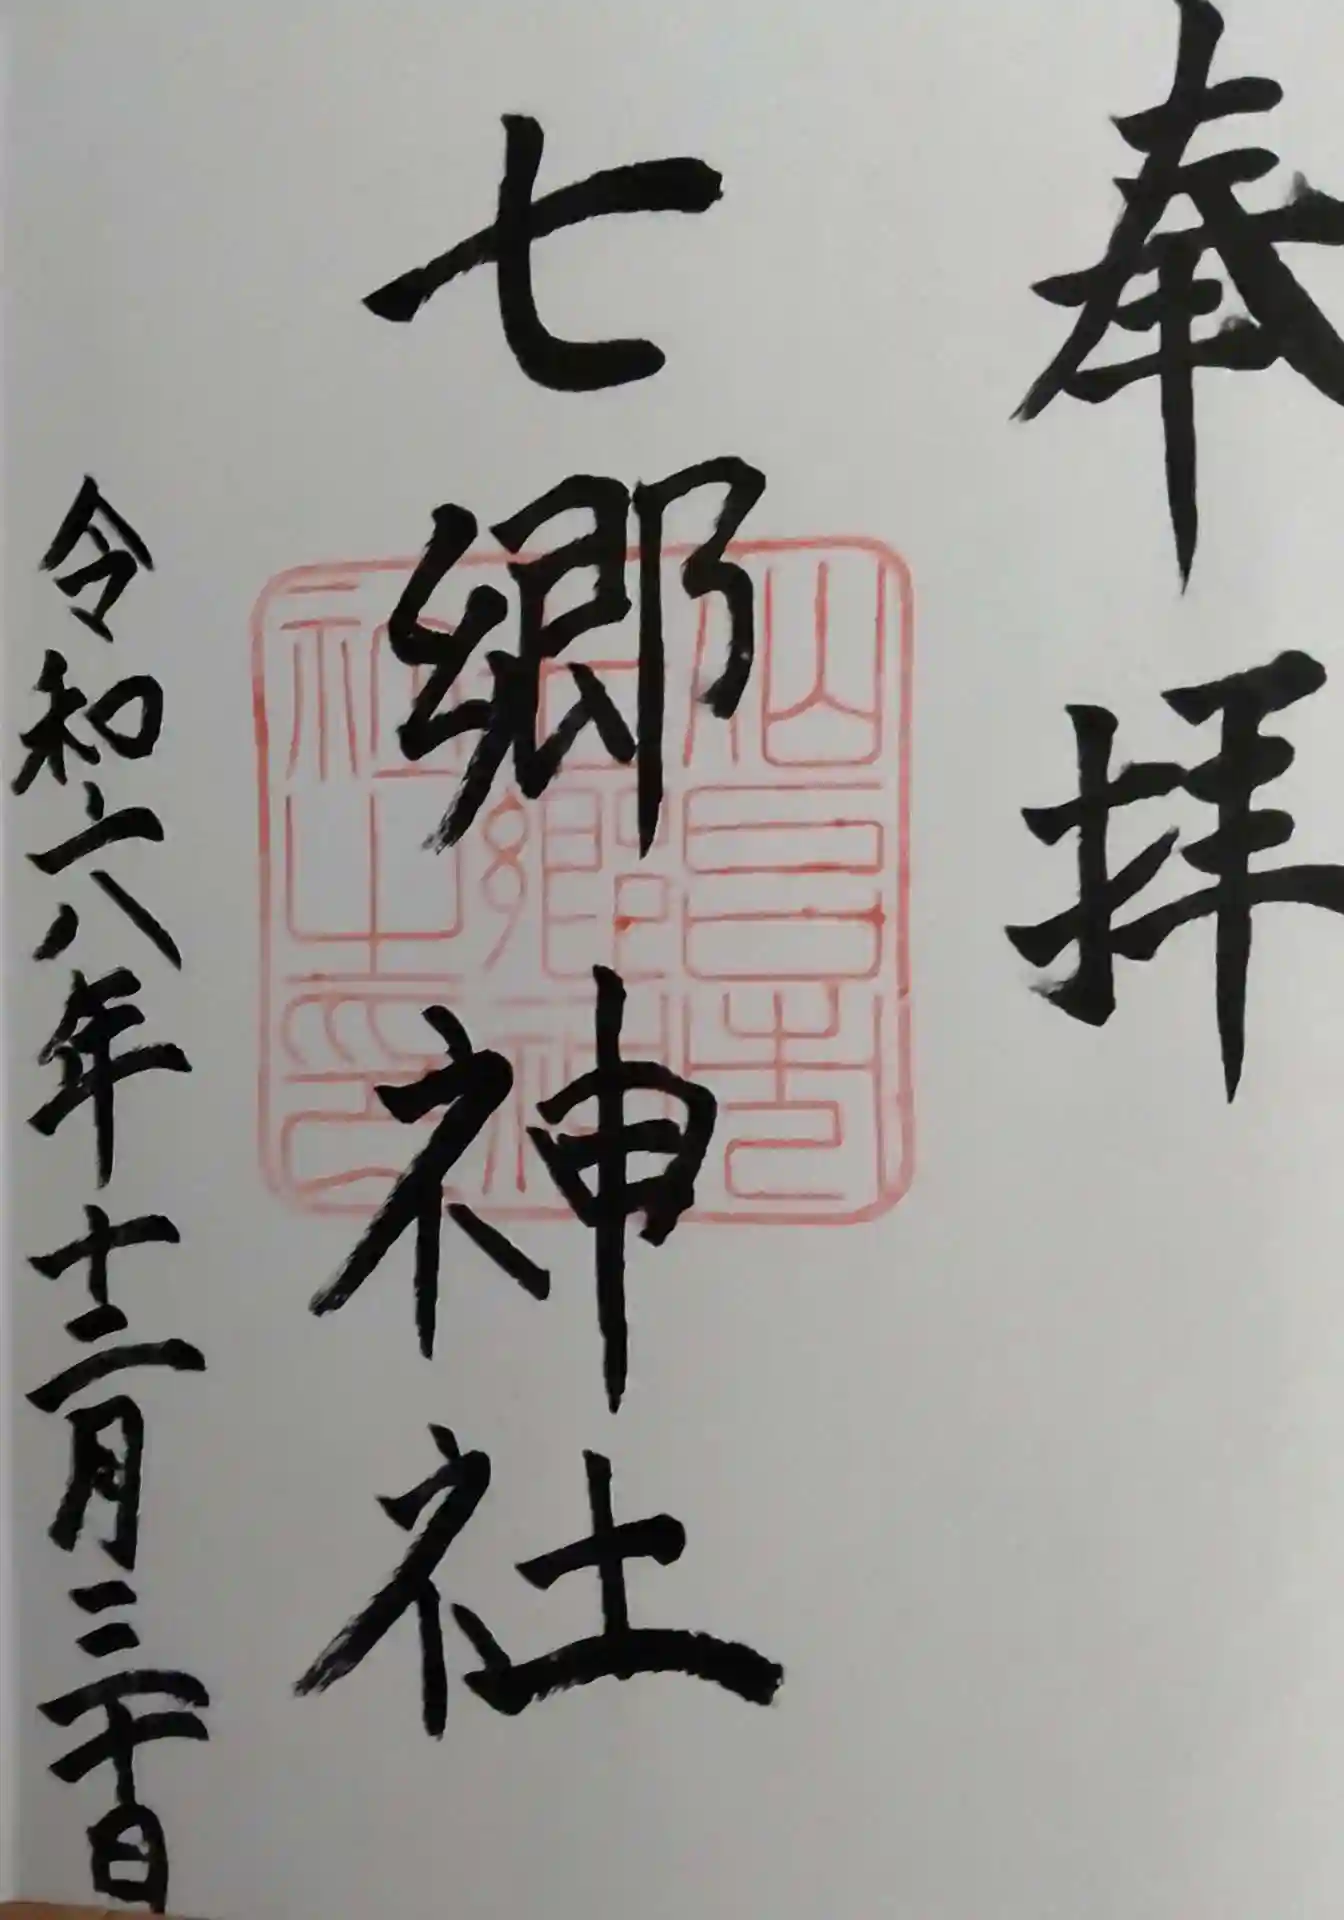 奉拝
七郷神社
令和六年十二月三十日
仙
七郷神
社之印